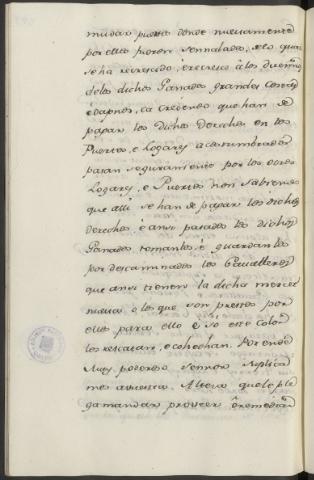 mudar puertos donde nuevamente
por ellos fueron sennalados, de lo qual
se ha recrescido, é recresce á los duennos
de los dichos Ganados grandes costas
é dapnos, ca creyendo que han de
pagar los dichos derechos en los
Puertos, e Logares acostumbrados
pasan seguramente por los otros
Logares, e Puertos non sabiendo
que alli se han de pagar los dichos
derechos é ansi pasados los dichos
Ganados tomanlos e guardanlos
por descaminados los Cavalleros
que ansi tienen la dicha merced
nueva é los que son puestos por
ellos para ello é só este color
los rescatan, e cohechan. Por ende
Muy poderoso Sennor suplica
mos a vuestra Alteza que le ple
ga mandar proveer é remediar